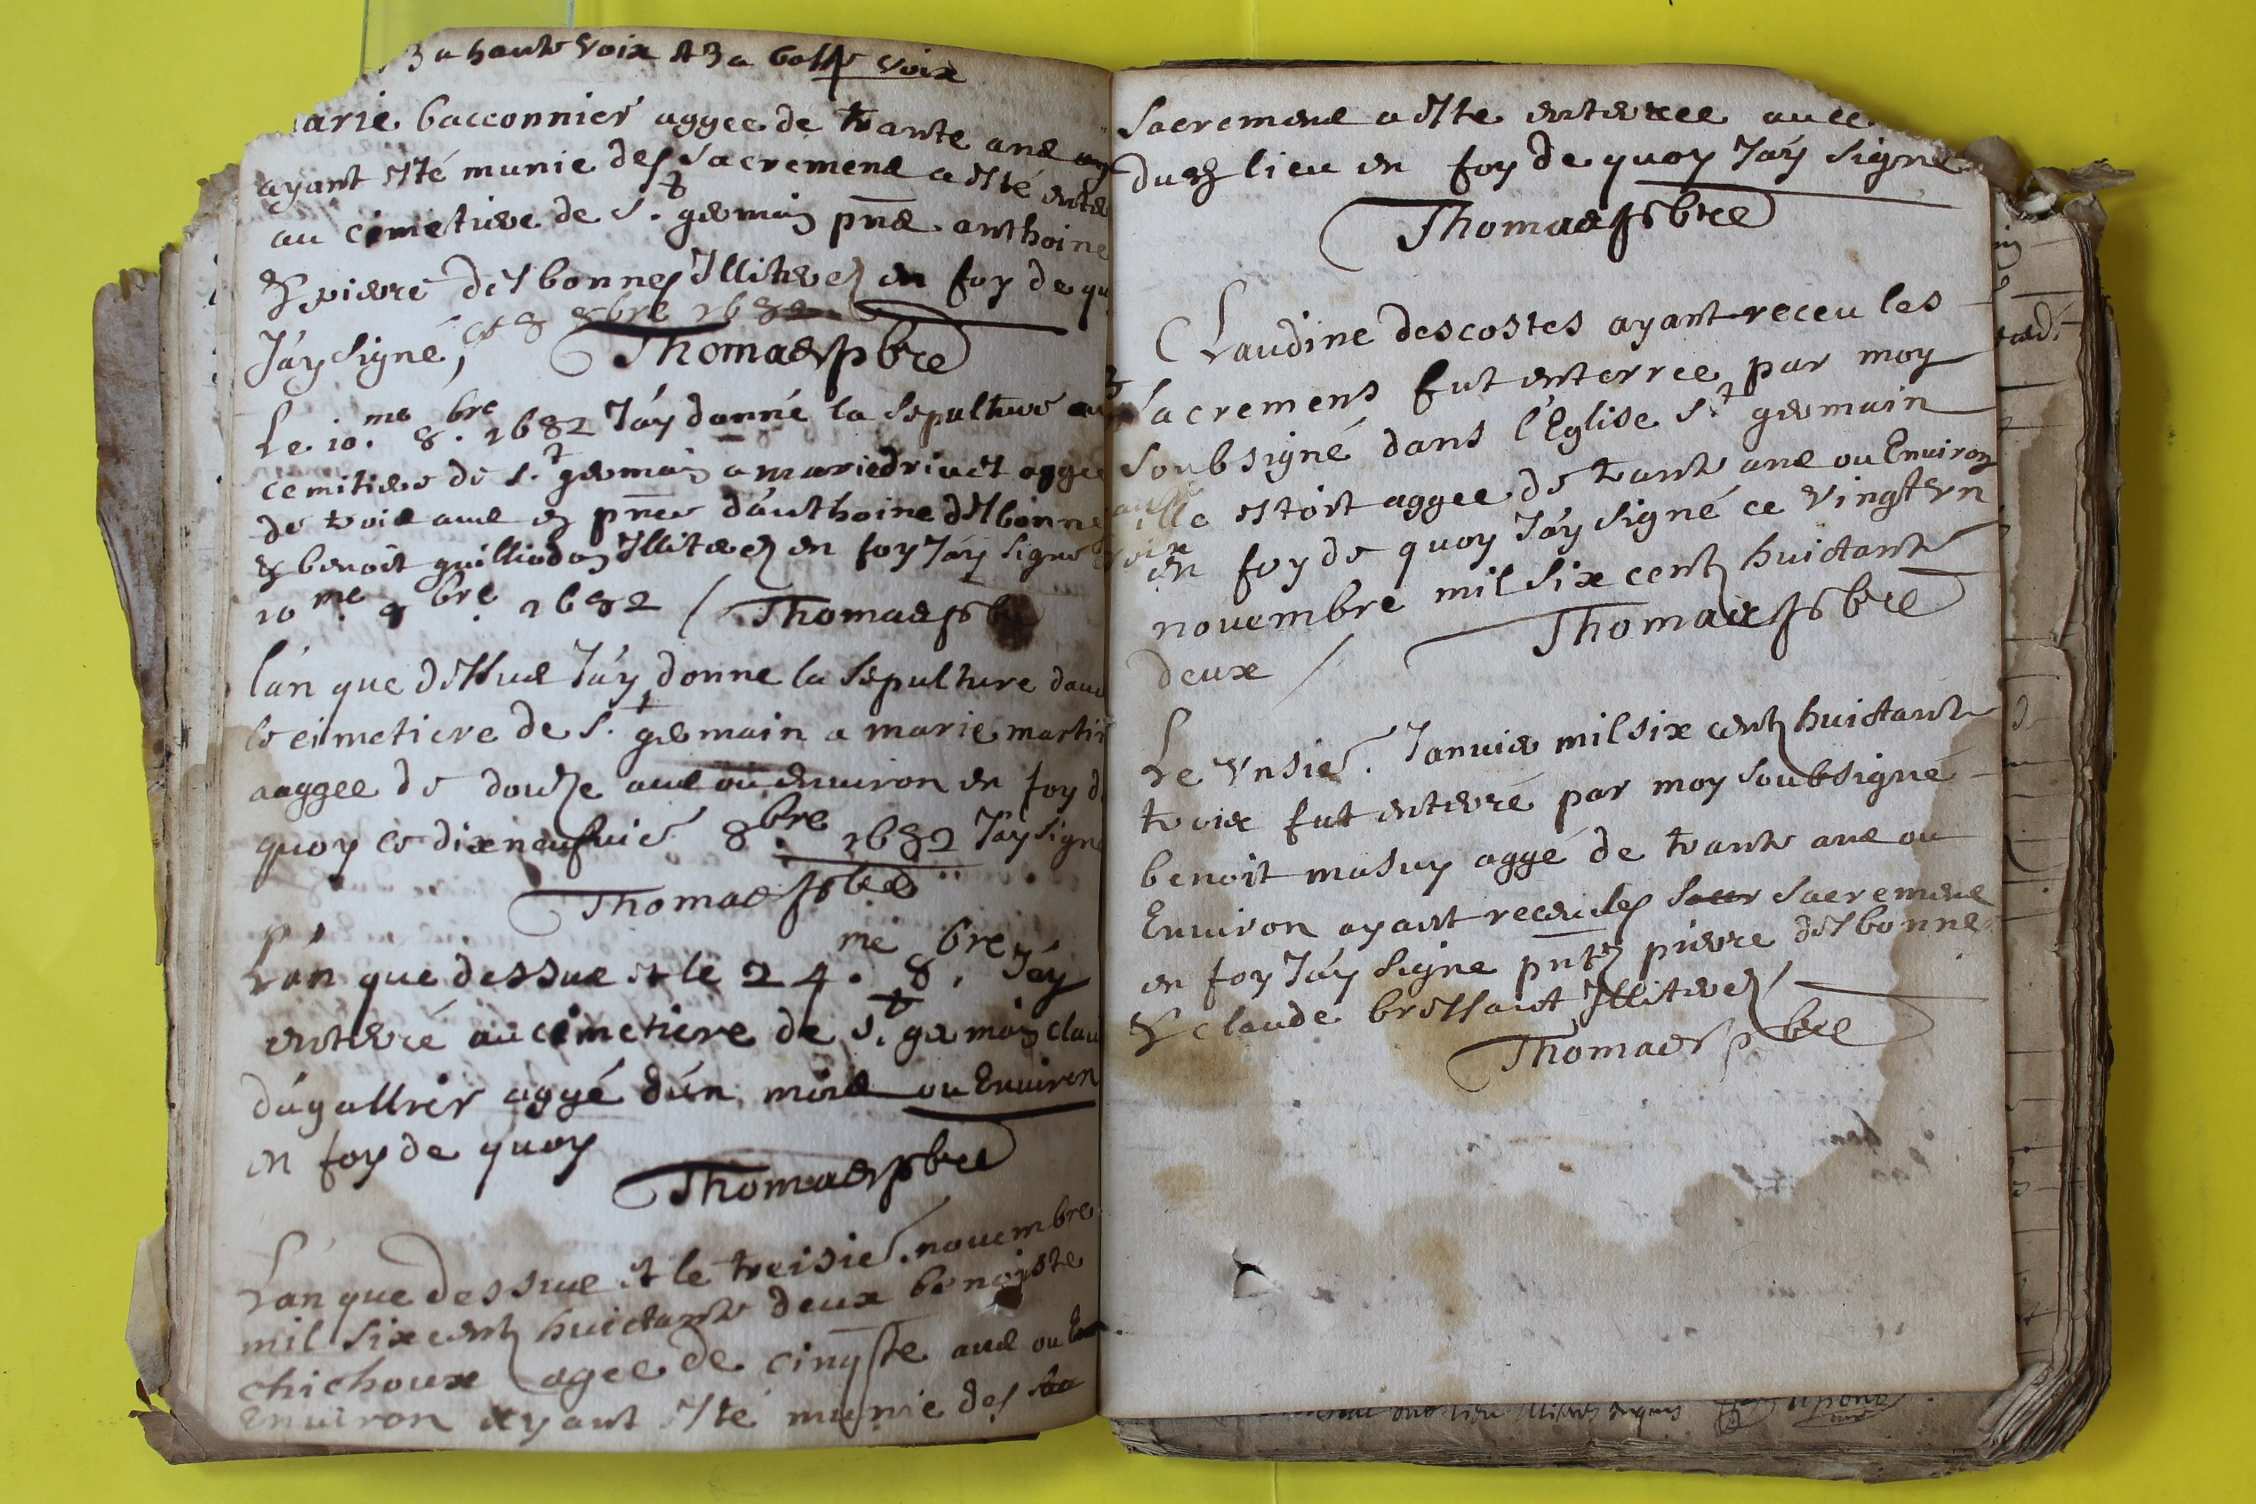 3 a haute voix et 3 a basse voix
marie bacconnier aggee de trante ans
ayant esté munie des sacremens a esté enter
au cimetiere de S.t germain pñs anthoine
& pierre desbonnes Illiteres en foy de qu
J'ay signé, ce 8 8bre 1682
Thomas pbre
Le 10.me 8.bre 1682 J'ay donné la sepulture au
cemitiere de S.t germain a marie drivet aggee
de trois ans en pñce d'anthoine desbonnes
& benoit guilliodon Illiteres en foy J'ay signé ce
10.me 8.bre 1682 / Thomas pbre
l'an que dessus J'ay donne la sepulture dans
le cimetiere de S.t germain a marie martin
aaggee de douze ans ou environ en foy de
quoy ce dixneufvie. 8.bre 1682 J'ay signé
Thomas pbre
L'an que dessus et le 24.me 8.bre J'ay
enterré au cimetiere de S.t germain clau
dugallier aggé d'un mois ou Environ
en foy de quoy
Thomas pbre
L'an que dessus et le treisie. novembre
mil six cents huictante deux benoiste
chichoux agee de cinqte ans ou
Environ ayant esté munie des
Sacremens a esté enterree au ce
dudt lieu en foy de quoy J'ay signé
Thomas pbre
Claudine descostes ayant receu les
Sacremens fut enterree par moy
soubsigné dans l'Eglise S.t germain
elle estoit aggee de trante ans ou Environ
en foy de quoy J'ay signé ce vingt un
novembre mil six cents huictante
deux / Thomas pbre
Le unsie. Janvier mil six cents huictante
trois fut enterré par moy soubsigné
benoit masuy aggé de trante ans ou
Environ ayant receu les sacremens
en foy J'ay signe pnts pierre desbonnes
& claude brossant Illiteres /
Thomas pbre